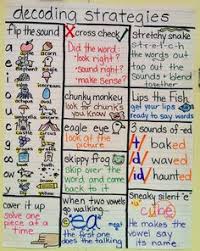 decoding strategies
flip the sound
a
e
i
o
u
c
g
ow
y
cover it up
solve one
piece at a
time
X cross check ✓
Did the word:
look right?
sound right?
make sense?
chunky monkey
look for chunks
you know
eagle eye
look at the
picture
skippy frog
Skip over the
word and
come back to it
when two vowels
go walking
ea
the first one
does the talking
stretchy snake
s-t-r-e-t-c-h
the words out
tap out the
sounds + blend
together
Lips the Fish
get your lips
ready to say words
3 sounds of red
/t/ baked
/d/ waved
/id/ haunted
Sneaky silent "e"
cube
He makes the
vowel say
its name